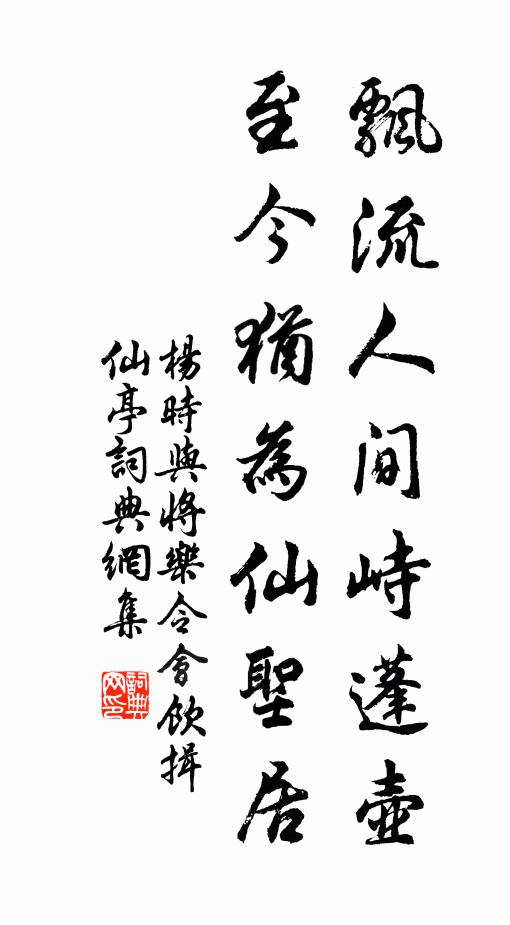 飄流人間峙蓬壺
至今猶為仙聖居
楊時與將樂令會飲揖
仙亭詞典網集
詞典
网印